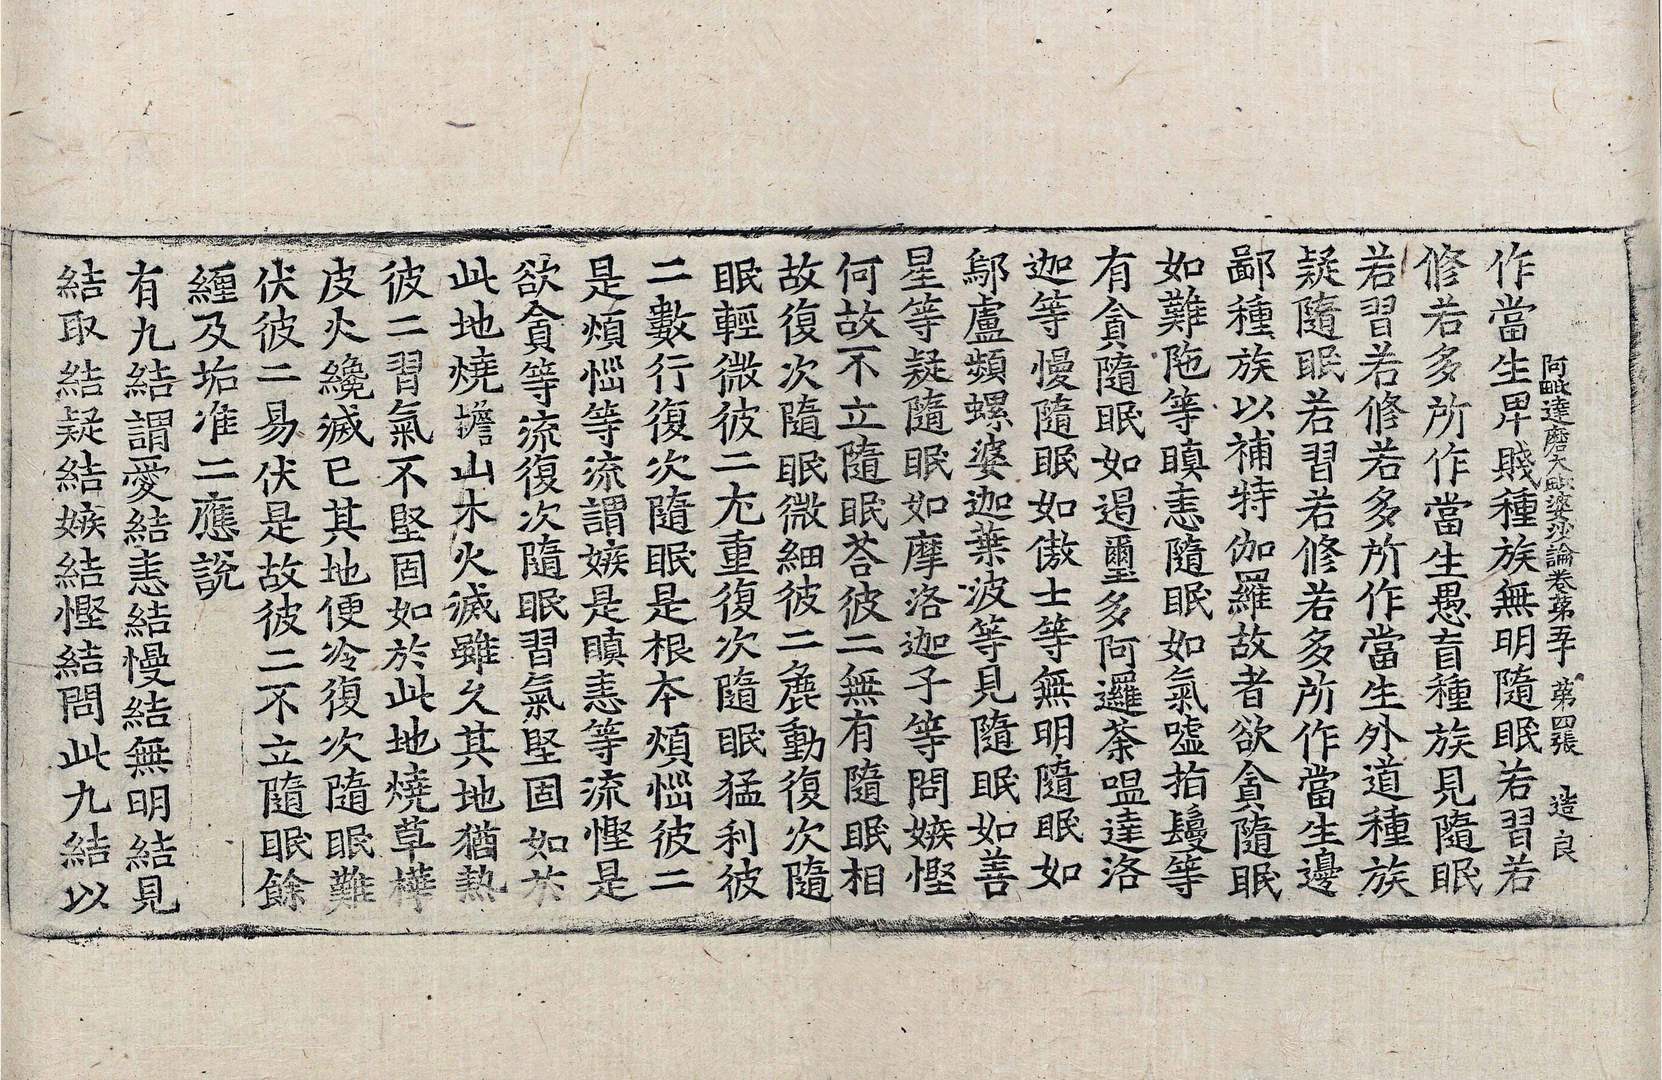 阿毗達磨大毗婆沙論卷第五十 第四張 造良
作當生卑賤種族無明隨眠若習若
修若多所作當生愚盲種族見隨眠
若習若修若多所作當生外道種族
疑隨眠若習若修若多所作當生邊
鄙種族以補特伽羅故者欲貪隨眠
如難陁等瞋恚隨眠如氣噓指鬘等
有貪隨眠如遏璽多阿邏荼嗢達洛
迦等慢隨眠如傲士等無明隨眠如
鄔盧頻螺婆迦葉波等見隨眠如善
星等疑隨眠如摩洛迦子等問嫉慳
何故不立隨眠荅彼二無有隨眠相
故復次隨眠微細彼二麁動復次隨
眠輕微彼二尤重復次隨眠猛利彼
二數行復次隨眠是根本煩惱彼二
是煩惱等流謂嫉是瞋恚等流慳是
欲貪等流復次隨眠習氣堅固如於
此地燒擔山木火滅雖久其地猶熱
彼二習氣不堅固如於此地燒草樺
皮火纔滅已其地便冷復次隨眠難
伏彼二易伏是故彼二不立隨眠餘
纏及垢准二應說
有九結謂愛結恚結慢結無明結見
結取結疑結嫉結慳結問此九結以